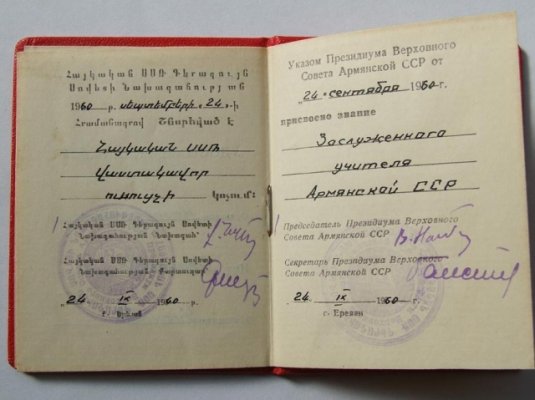 Հայկական ՍՍՌ Գերագույն
Սովետի Նախագահության
1960 թ. սեպտեմբերի «24»-ի
Հրամանագրով Շնորհված է
Հայկական ՍՍՌ
վաստակավոր
ուսուցչի կոչում:
Հայկական ՍՍՌ Գերագույն Սովետի
Նախագահության Նախագահ
Հայկական ՍՍՌ Գերագույն Սովետի
Նախագահության Քարտուղար
«24» IX 1960 թ.
ք. Երևան
Указом Президиума Верховного
Совета Армянской ССР от
«24» сентября 1960г.
присвоено звание
Заслуженного
учителя
Армянской ССР
Председатель Президиума Верховного
Совета Армянской ССР
Секретарь Президиума Верховного
Совета Армянской ССР
«24» IX 1960 г.
г. Ереван